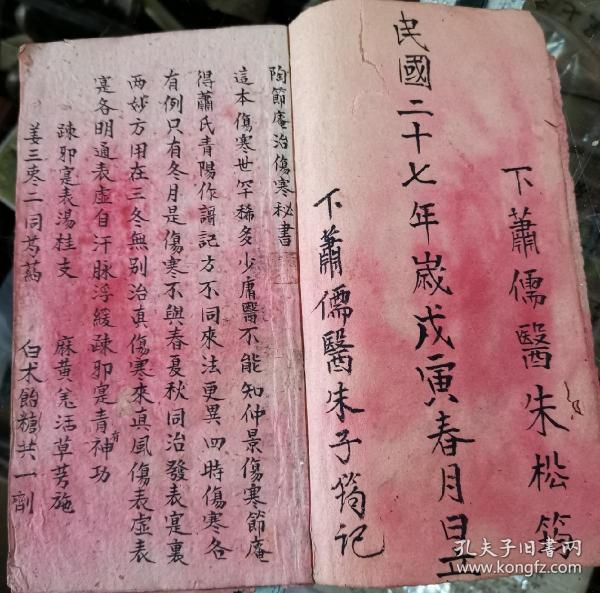 下蕭儒醫朱松筠
民國二十七年歲戊寅春月
下蕭儒醫朱子筠記
陶節庵治傷寒秘書
這本傷寒世罕稀多少庸醫不能知仲景傷寒節庵
得蕭氏青陽作謌記方不同來法更異四時傷寒各
有例只有冬月是傷寒不與春夏秋同治發表寔裏
兩妙方用在三冬無別治真傷寒來真風傷表虛表
寔各明通表虛自汗脉浮緩疎邪寔青神有功
疎邪寔表湯桂支 麻黄羌活草芎施
姜三枣二同芍葯 白术飴糖共一劑
孔夫子旧书网
www.kongfz.com